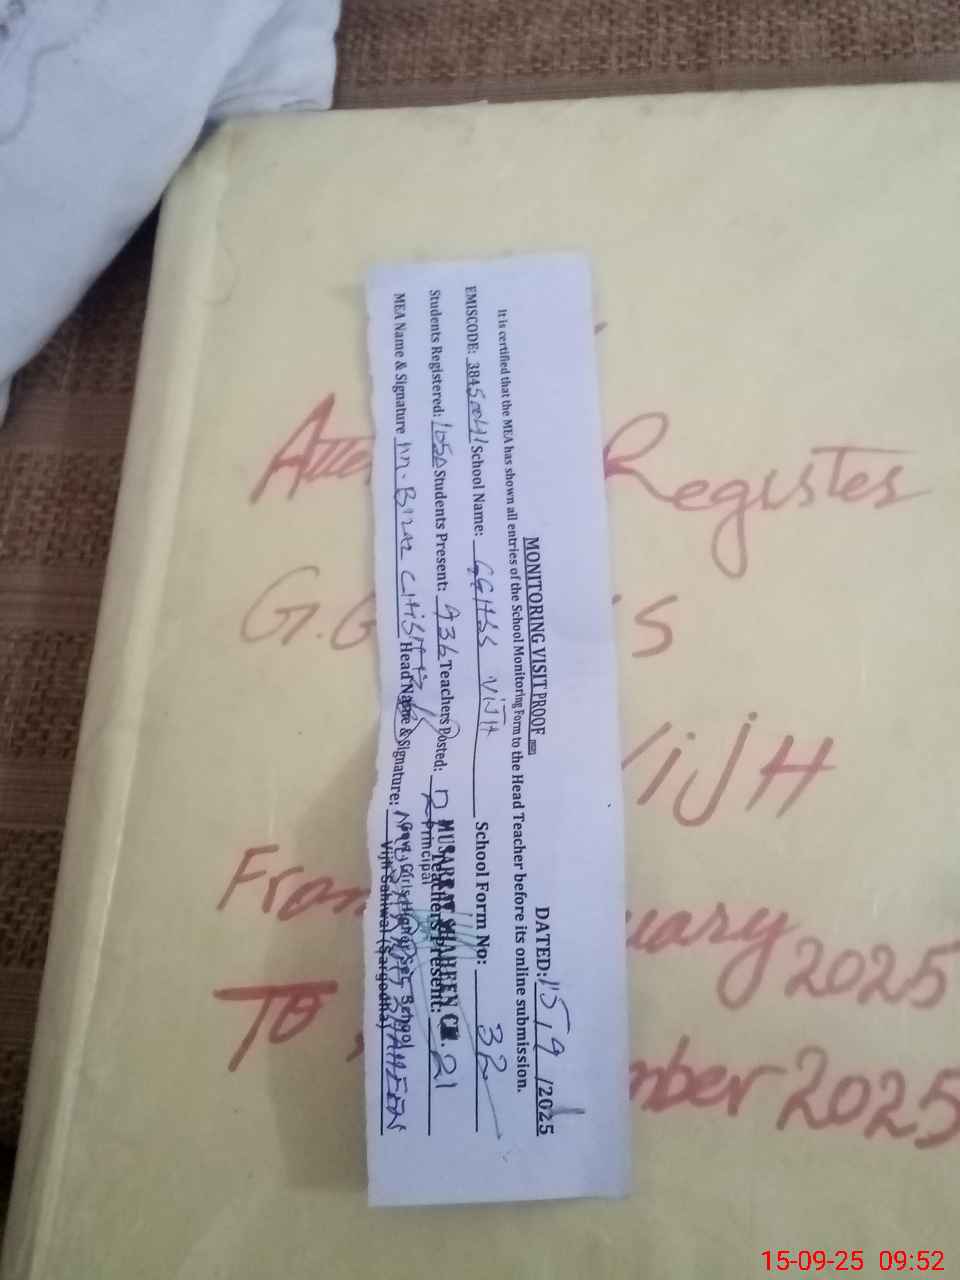 MONITORING VISIT PROOF
DATED: 15/9/2025
It is certified that the MEA has shown all entries of the School Monitoring Form to the Head Teacher before its online submission.
EMISCODE: 38450041 School Name: GGHSS VIJH School Form No: 32
Students Registered: 1050 Students Present: 936 Teachers Posted: Teachers Present: 21
MEA Name & Signature Head Name & Signature:
MUSARRAT SHAHEEN
Principal
Govt. Girls Higher Sec. School
Vijh Sahiwal (Sargodha)
Register
G.G S
VIJH
From 2025
To 2025
15-09-25 09:52